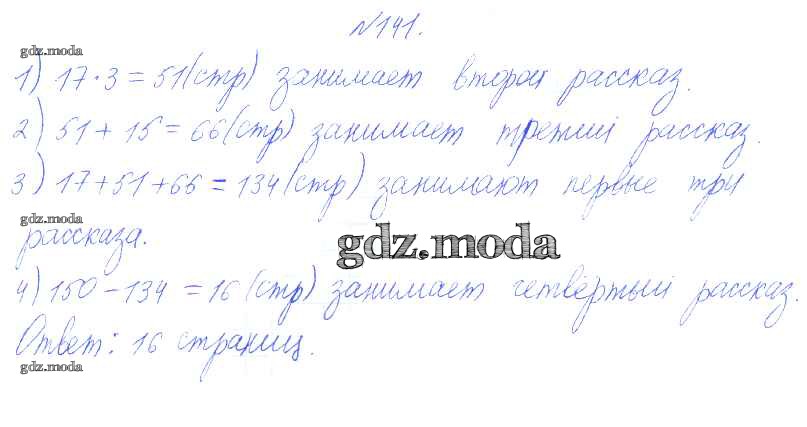 №141.
gdz.moda
1) 17·3=51(стр) занимает второй рассказ.
2) 51+15=66(стр) занимает третий рассказ.
3) 17+51+66=134(стр) занимают первые три
gdz.moda
рассказа.
gdz.moda
4) 150-134=16(стр) занимает четвёртый рассказ.
Ответ: 16 страниц.
gdz.moda